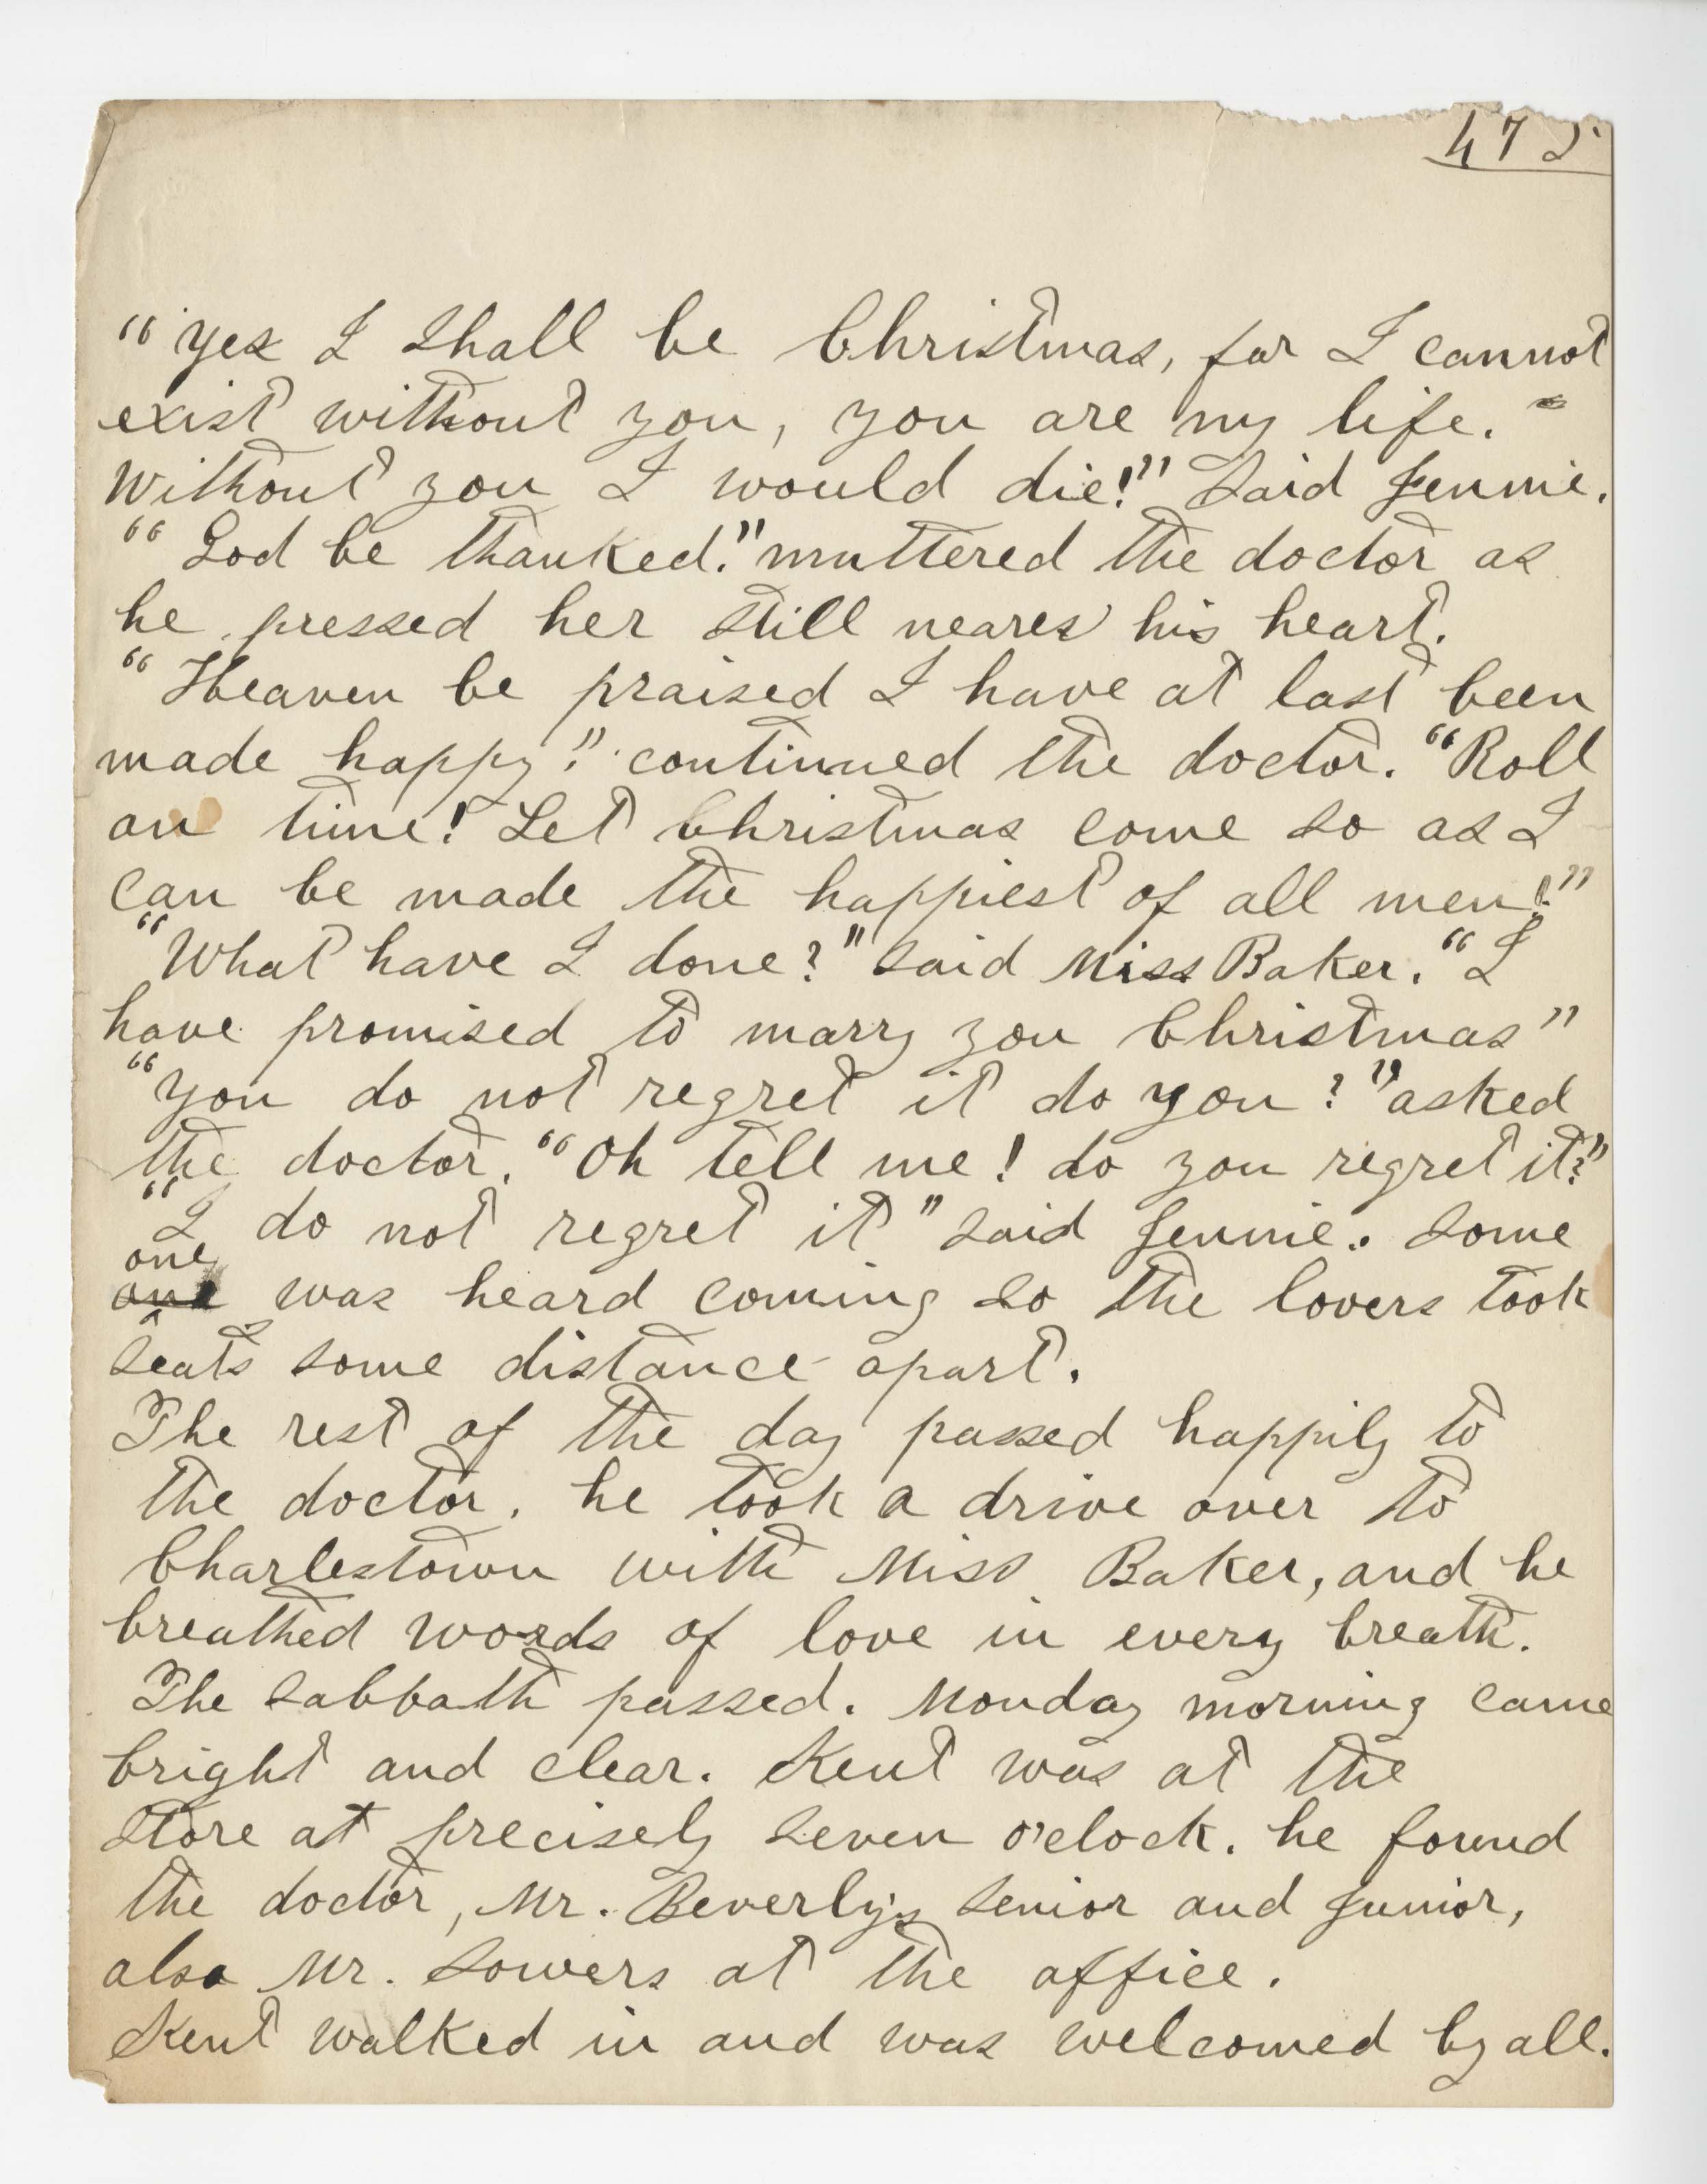 475
"Yes I shall be Christmas, for I cannot
exist without you, you are my life.
Without you I would die!" Said Jennie.
"God be thanked." muttered the doctor as
he pressed her still nearer his heart.
"Heaven be praised I have at last been
made happy!" continued the doctor. "Roll
on time! Let Christmas come so as I
can be made the happiest of all men!"
"What have I done?" said Miss Baker. "I
have promised to marry you Christmas"
"You do not regret it do you?" asked
the doctor. "Oh tell me! do you regret it?"
"I do not regret it" said Jennie. Some
one
was heard coming so the lovers took
seats some distance apart.
The rest of the day passed happily to
the doctor. he took a drive over to
Charlestown with Miss Baker, and he
breathed words of love in every breath.
The Sabbath passed. Monday morning came
bright and clear. Kent was at the
store at precisely seven o'clock. he found
the doctor, Mr. Beverly's senior and Junior,
also Mr. Sowers at the office.
Kent walked in and was welcomed by all.